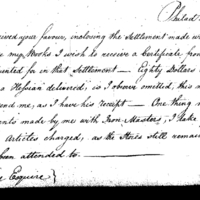 Philad
ived your favour, inclosing the Settlement made w
e my Works I wish to receive a Certificate from
unted for in that Settlement — Eighty Dollars
a Hessian delivered, is I observe omitted, this a
end me, as I have his receipt — One thing
ents made by me with Iron-Masters; I take
Articles charged, as the Stores still remain
been attended to. —
Esquire